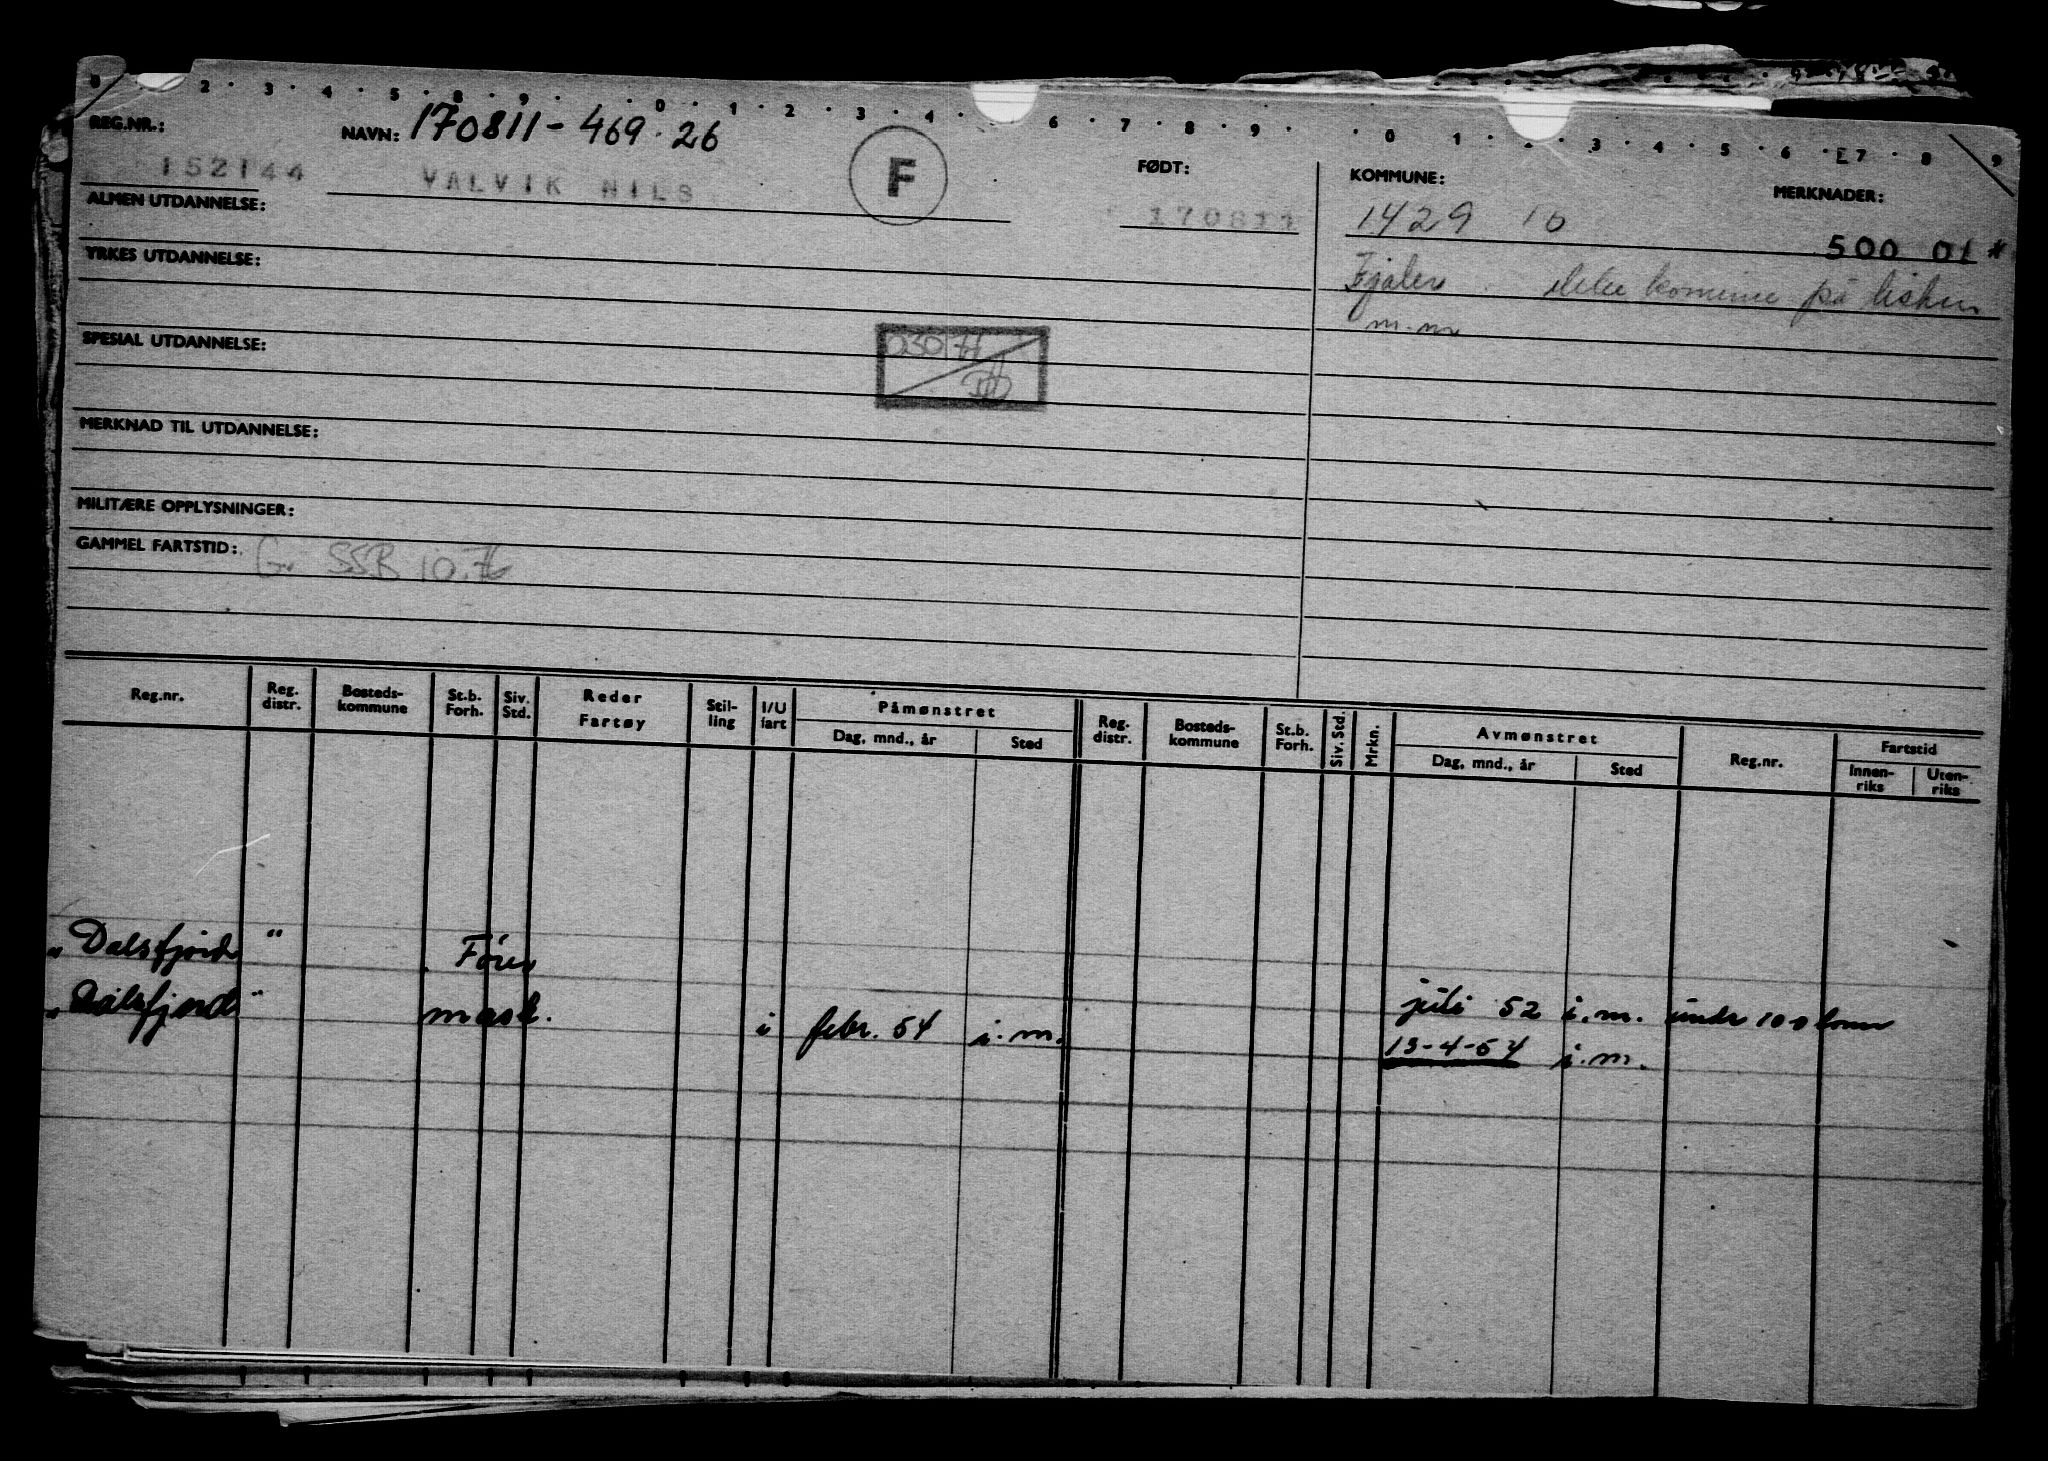 0 2 . 3 . 4 . 5 . 8 . 9 . . 0 . 1 . 2 . 3 . 4 . 6 . 7 . 8 . 9 . . 0 1 . 3 . 4 . 5 . 6 . 7 . 8 9
REG.NR.: NAVN: 170811-469.26 F FØDT: KOMMUNE: MERKNADER:
152144 VALVIK NILS 170811 1429 10 500 01 *
ALMEN UTDANNELSE:
YRKES UTDANNELSE: Fjaler komme på
m.m
SPESIAL UTDANNELSE: 030
MERKNAD TIL UTDANNELSE:
MILITÆRE OPPLYSNINGER:
GAMMEL FARTSTID: G. SSB 10.76
Reg.nr. Reg. distr. Bosteds-kommune St.b. Forh. Siv. Std. Reder Fartøy Stil-ling I/U fart Påmønstret Reg. distr. Bosteds-kommune St.b. Forh. Siv. Std. Mrkn. Avmønstret Reg.nr. Fartstid
Dag, mnd., år Sted Dag, mnd., år Sted Innen-riks Uten-riks
"Dalsfjord" Fører juli 52 i.m. under 100 tonn
"Dalsfjord" mask. i febr. 54 i.m. 13-4-54 i.m.